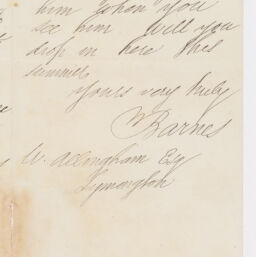 him when you
see him Will you
drop in here this
summer
yours very truly
W Barnes
W. Allingham Esq
Lymington